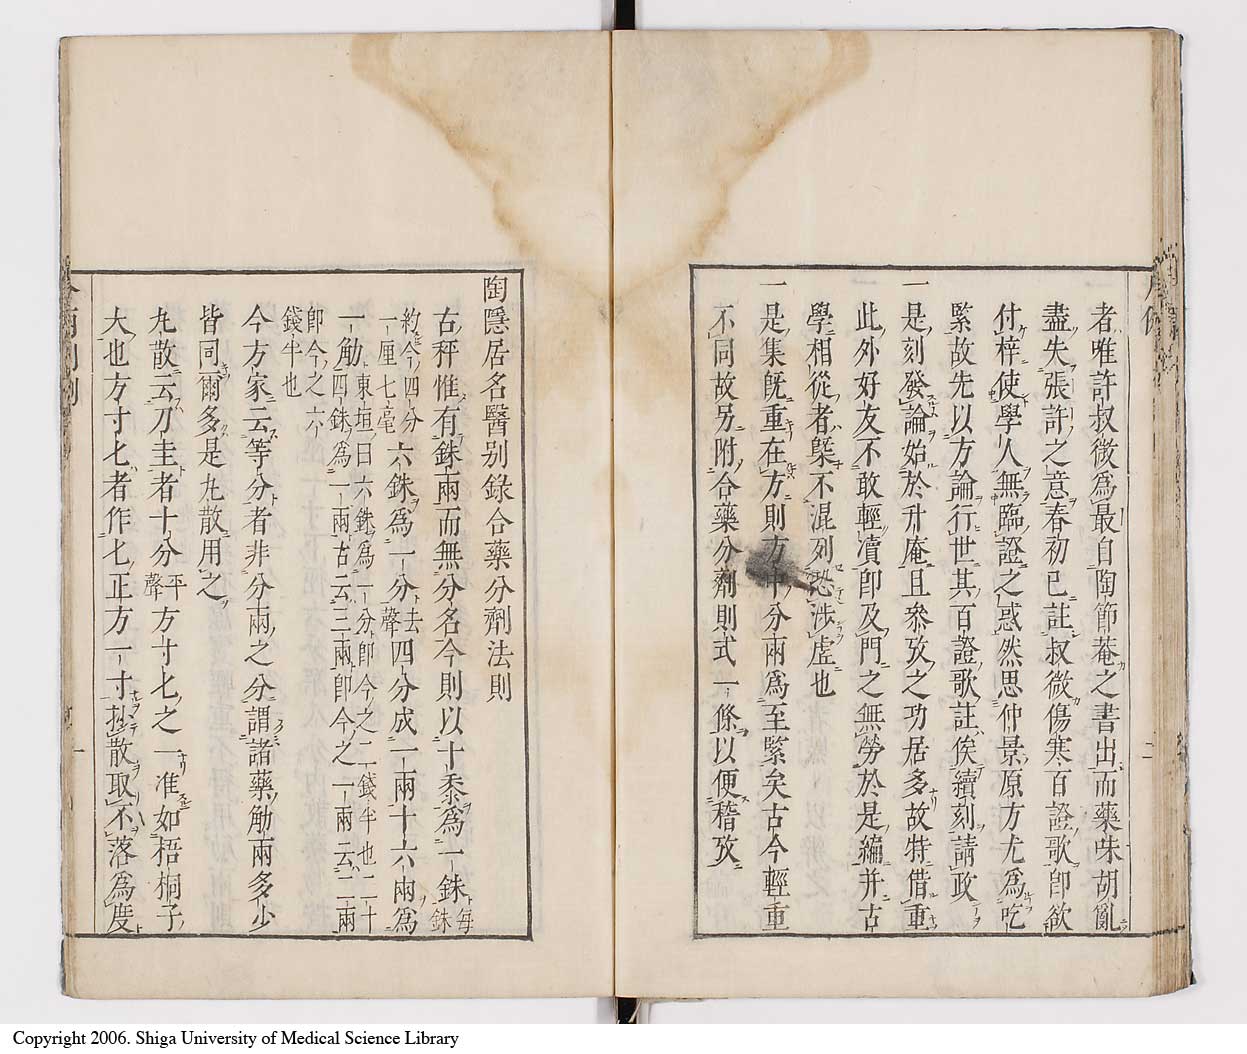 者唯許叔微爲最自陶節菴之書出而藥味胡亂
盡失張許之意春初已註叔微傷寒百證歌卽欲
付梓使學人無臨證之惑然思仲景原方尤爲吃
緊故先以方論行世其百證歌註俟續刻請政
一是刻發論始於升庵且參攷之功居多故特借重
此外好友不敢輕凟卽及門之無勞於是編并古
學相從者槩不混列恐涉虛也
一是集旣重在方則方中分兩爲至緊矣古今輕重
不同故另附合藥分劑則式一條以便稽攷
陶隱居名醫別錄合藥分劑法則
古秤惟有銖兩而無分名今則以十黍爲一銖每銖
約今四分一厘七毫六銖爲一分去聲四分成一兩十六兩爲
一觔東垣曰六銖爲一分卽今之二錢半也二十四銖爲一兩古云三兩卽今之一兩云二兩
卽今之六錢半也
今方家云等分者非分兩之分謂諸藥觔兩多少
皆同爾多是丸散用之
丸散云刀圭者十分平聲方寸匕之一准如梧桐子
大也方寸匕者作匕正方一寸抄散取不落爲度